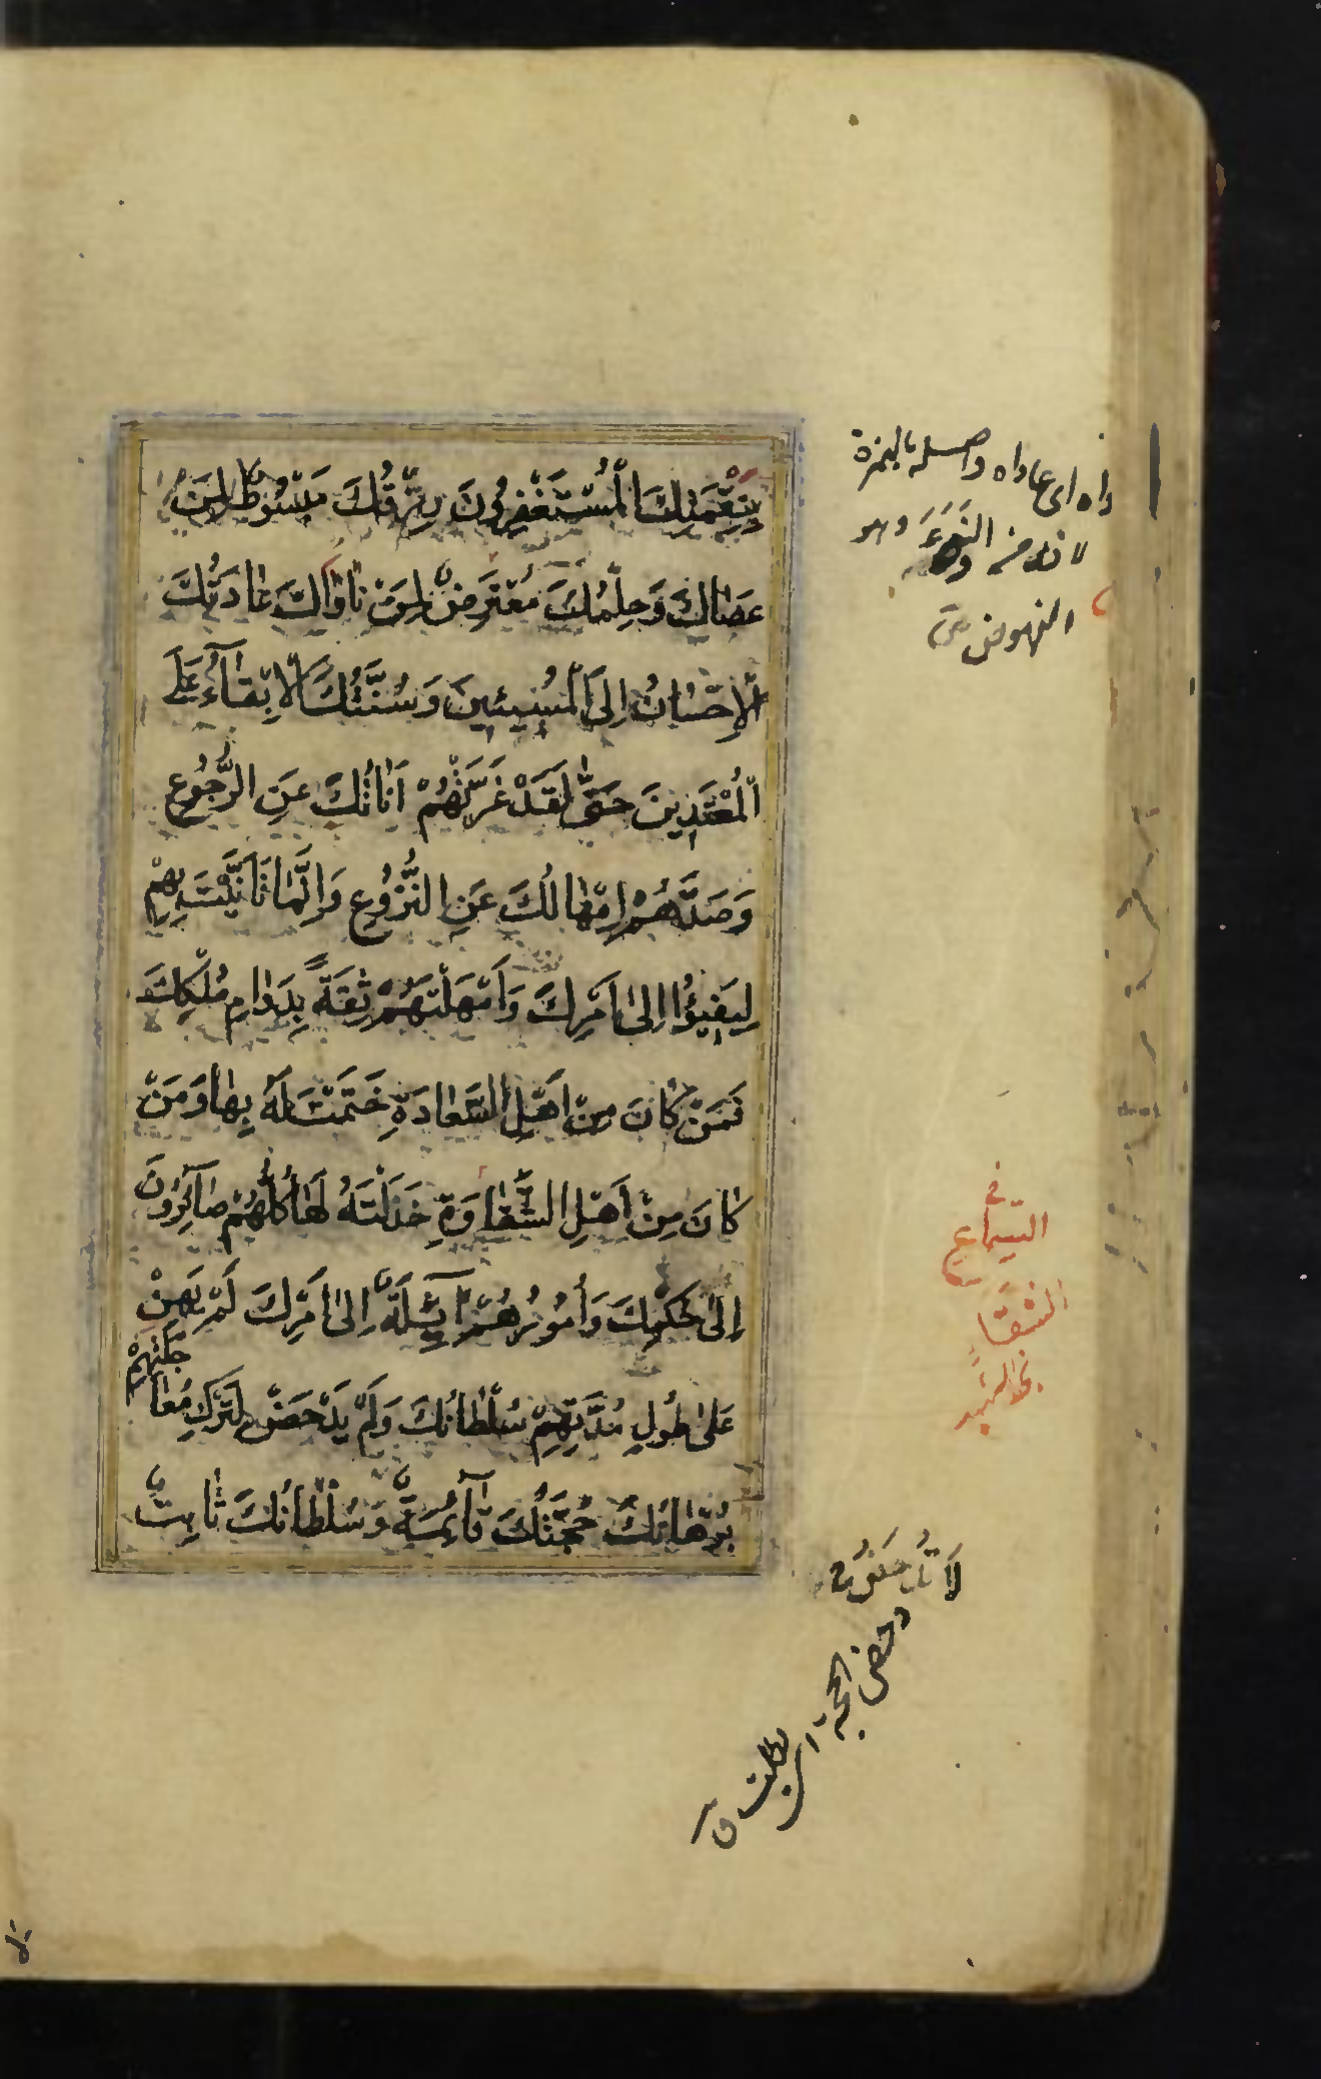 بِنِعْمَتِكَ الْمُسْتَغْفِرُونَ رِزْقُكَ مَبْسُوطٌ لِمَنْ
عَصَاكَ وَحِلْمُكَ مُعْتَرِضٌ لِمَنْ نَاوَاكَ عَادَتُكَ
الْإِحْسَانُ اِلَى الْمُسِيئِينَ وَسُنَّتُكَ الْاِبْقَآءُ عَلَى
الْمُعْتَدِينَ حَتّٰى لَقَدْ غَرَّتْهُمْ اَنَاتُكَ عَنِ الرُّجُوعِ
وَصَدَّهُمْ اِمْهَالُكَ عَنِ النُّزُوعِ وَاِنَّمَا تَاَنَّيْتَ بِهِمْ
لِيَفِيئُوا اِلٰى اَمْرِكَ وَاَمْهَلْتَهُمْ ثِقَةً بِدَوَامِ مُلْكِكَ
فَمَنْ كَانَ مِنْ اَهْلِ السَّعَادَةِ خَتَمْتَ لَهُ بِهَا وَمَنْ
كَانَ مِنْ اَهْلِ الشَّقَاوَةِ خَذَلْتَهُ لَهَا كُلُّهُمْ صَآئِرُونَ
اِلٰى حُكْمِكَ وَاُمُورُهُمْ آئِلَةٌ اِلٰى اَمْرِكَ لَمْ يَهِنْ
عَلٰى طُولِ مُدَّتِهِمْ سُلْطَانُكَ وَلَمْ يَدْحَضْ لِتَرْكِ مُعَاجَلَتِهِمْ
بُرْهَانُكَ حُجَّتُكَ قَآئِمَةٌ وَسُلْطَانُكَ ثَابِتٌ
ناواه اى عاداه واصله بالهمزة
لانه من النوء وهو
النهوض
في
السماع
الشقا
لا تدحض
دحض الحجة اى بطلت